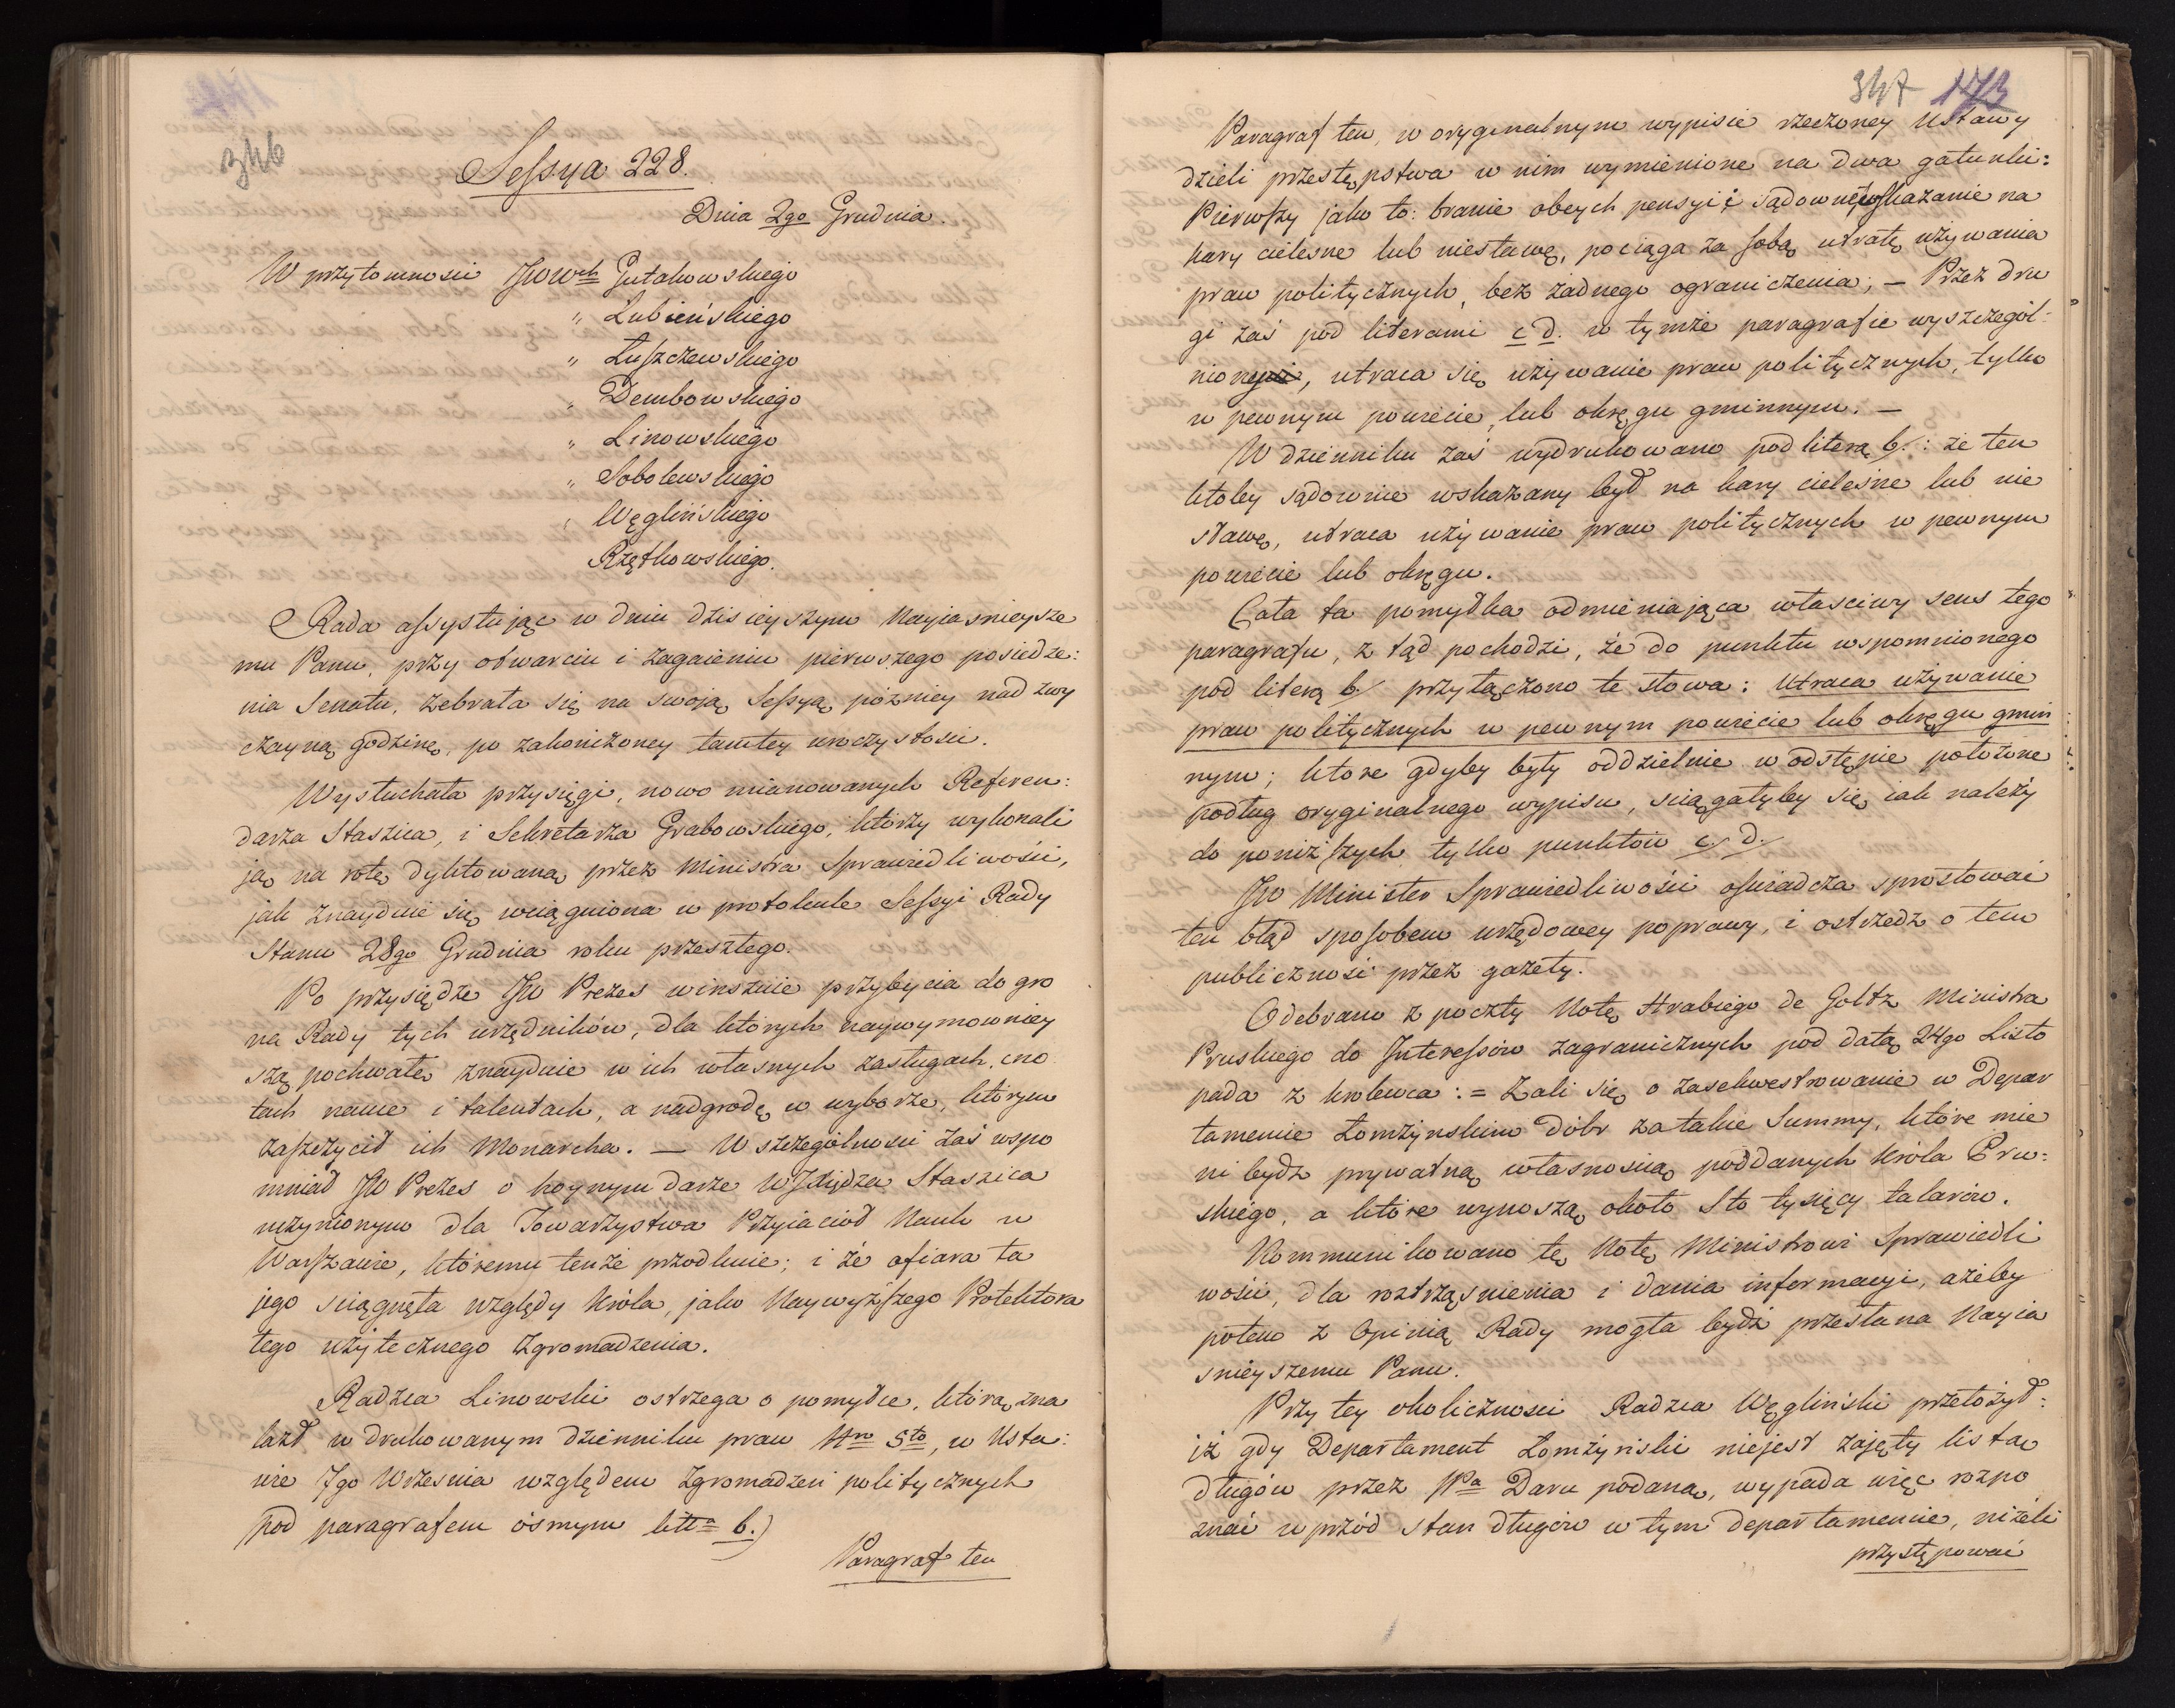 346
Sessya 228.
Dnia 2go Grudnia.
W przytomnosci JWWch Gutakowskiego
" Łubieńskiego
" Łuszczewskiego
" Dembowskiego
" Linowskiego
" Sobolewskiego
" Węglińskiego
Rzętkowskiego.
Rada assystując w dniu dzisieyszym Nayiasnieysze
mu Panu, przy otwarciu i zagaieniu pierwszego posiedze:
nia Senatu, zebrała się na swoją Sessyą pózniey nad zwy
czayną godzinę, po zakończoney tamtey uroczystosci.
Wysłuchała przysięgi, nowo mianowanych Referen:
darza Staszica, i Sekretarza Grabowskiego, którzy wykonali
ją na rotę dyktowaną przez Ministra Sprawiedliwości,
jak znayduie się wciągniona w protokule Sessyi Rady
Stanu 28go Grudnia roku przeszłego.
Po przysiędze JW Prezes winszuie przybycia do gro
na Rady tych urzędników, dla których naywymowniey
szą pochwałę znayduie w ich własnych zasługach, cno
tach nauce i talentach, a nadgrodę w wyborze, którym
zaszczycił ich Monarcha. — W szczególnosci zaś wspo
mniał JW Prezes o hoynym darze W JXiędza Staszica
uczynionym dla Towarzystwa Przyiaciół Nauk w
Warszawie, któremu tenże przodkuie; i że ofiara ta
jego sciągnęła względy Króla, jako Naywyższego Protektora
tego użytecznego Zgromadzenia.
Radzca Linowski ostrzega o pomyłce, którą zna
lazł w drukowanym dzienniku praw Nro 5to, w Usta:
wie 7go Wrzesnia względem Zgromadzeń politycznych
pod paragrafem ósmym litta b.)
Paragraf ten
347 173
Paragraf ten, w oryginalnym wypisie rzeczoney Ustawy
dzieli przestępstwa w nim wymienione na dwa gatunki:
Pierwszy jako to: branie obcych pensyi i sądowne wskazanie na
kary cielesne lub niesławę, pociąga za sobą utratę używania
praw politycznych, bez żadnego ograniczenia; — Przez dru
gi zaś pod literami c d. w tymże paragrafie wyszczegól:
niony, utraca się używanie praw politycznych, tylko
w pewnym powiecie, lub okręgu gminnym. —
W dzienniku zaś wydrukowano pod literą b/: że ten
ktoby sądownie wskazany był na kary cielesne lub nie
sławę, utraca używanie praw politycznych w pewnym
powiecie lub okręgu.
Cała ta pomyłka odmieniająca własciwy sens tego
paragrafu, z tąd pochodzi, że do punktu wspomnionego
pod literą b/ przyłączono te słowa: Utraca używanie
praw politycznych w pewnym powiecie lub okręgu gmin
nym; które gdyby były oddzielnie w odstępie położone
podług oryginalnego wypisu, sciągałyby się iak należy
do poniższych tylko punktów c/ d/
JW Minister Sprawiedliwości oświadcza sprostować
ten błąd sposobem urzędowey poprawy, i ostrzedz o tem
publiczność przez gazety.
Odebrano z poczty Notę Hrabiego de Goltz Ministra
Pruskiego do Interessów zagranicznych pod datą 24go Listo
pada z Krolewca := Żali się o zasekwestrowanie w Depar
tamencie Łomżynskim dóbr za takie Summy, które mie
ni bydz prywatną własnoscią poddanych Króla Pru:
skiego, a które wynoszą około Sto tysięcy talarów.
Kommunikowano tę Notę Ministrowi Sprawiedli
wości, dla roztrząsnienia i dania informacyi, ażeby
potem z Opinią Rady mogła bydź przesłana Nayia
snieyszemu Panu.
Przy tey okolicznosci Radzca Węgliński przełożył:
iż gdy Departament Łomżyński niejest zajęty listą
długów przez Pa Daru podaną, wypada więc rozpo
znać wprzód stan długów w tym departamencie, niżeli
przystępować